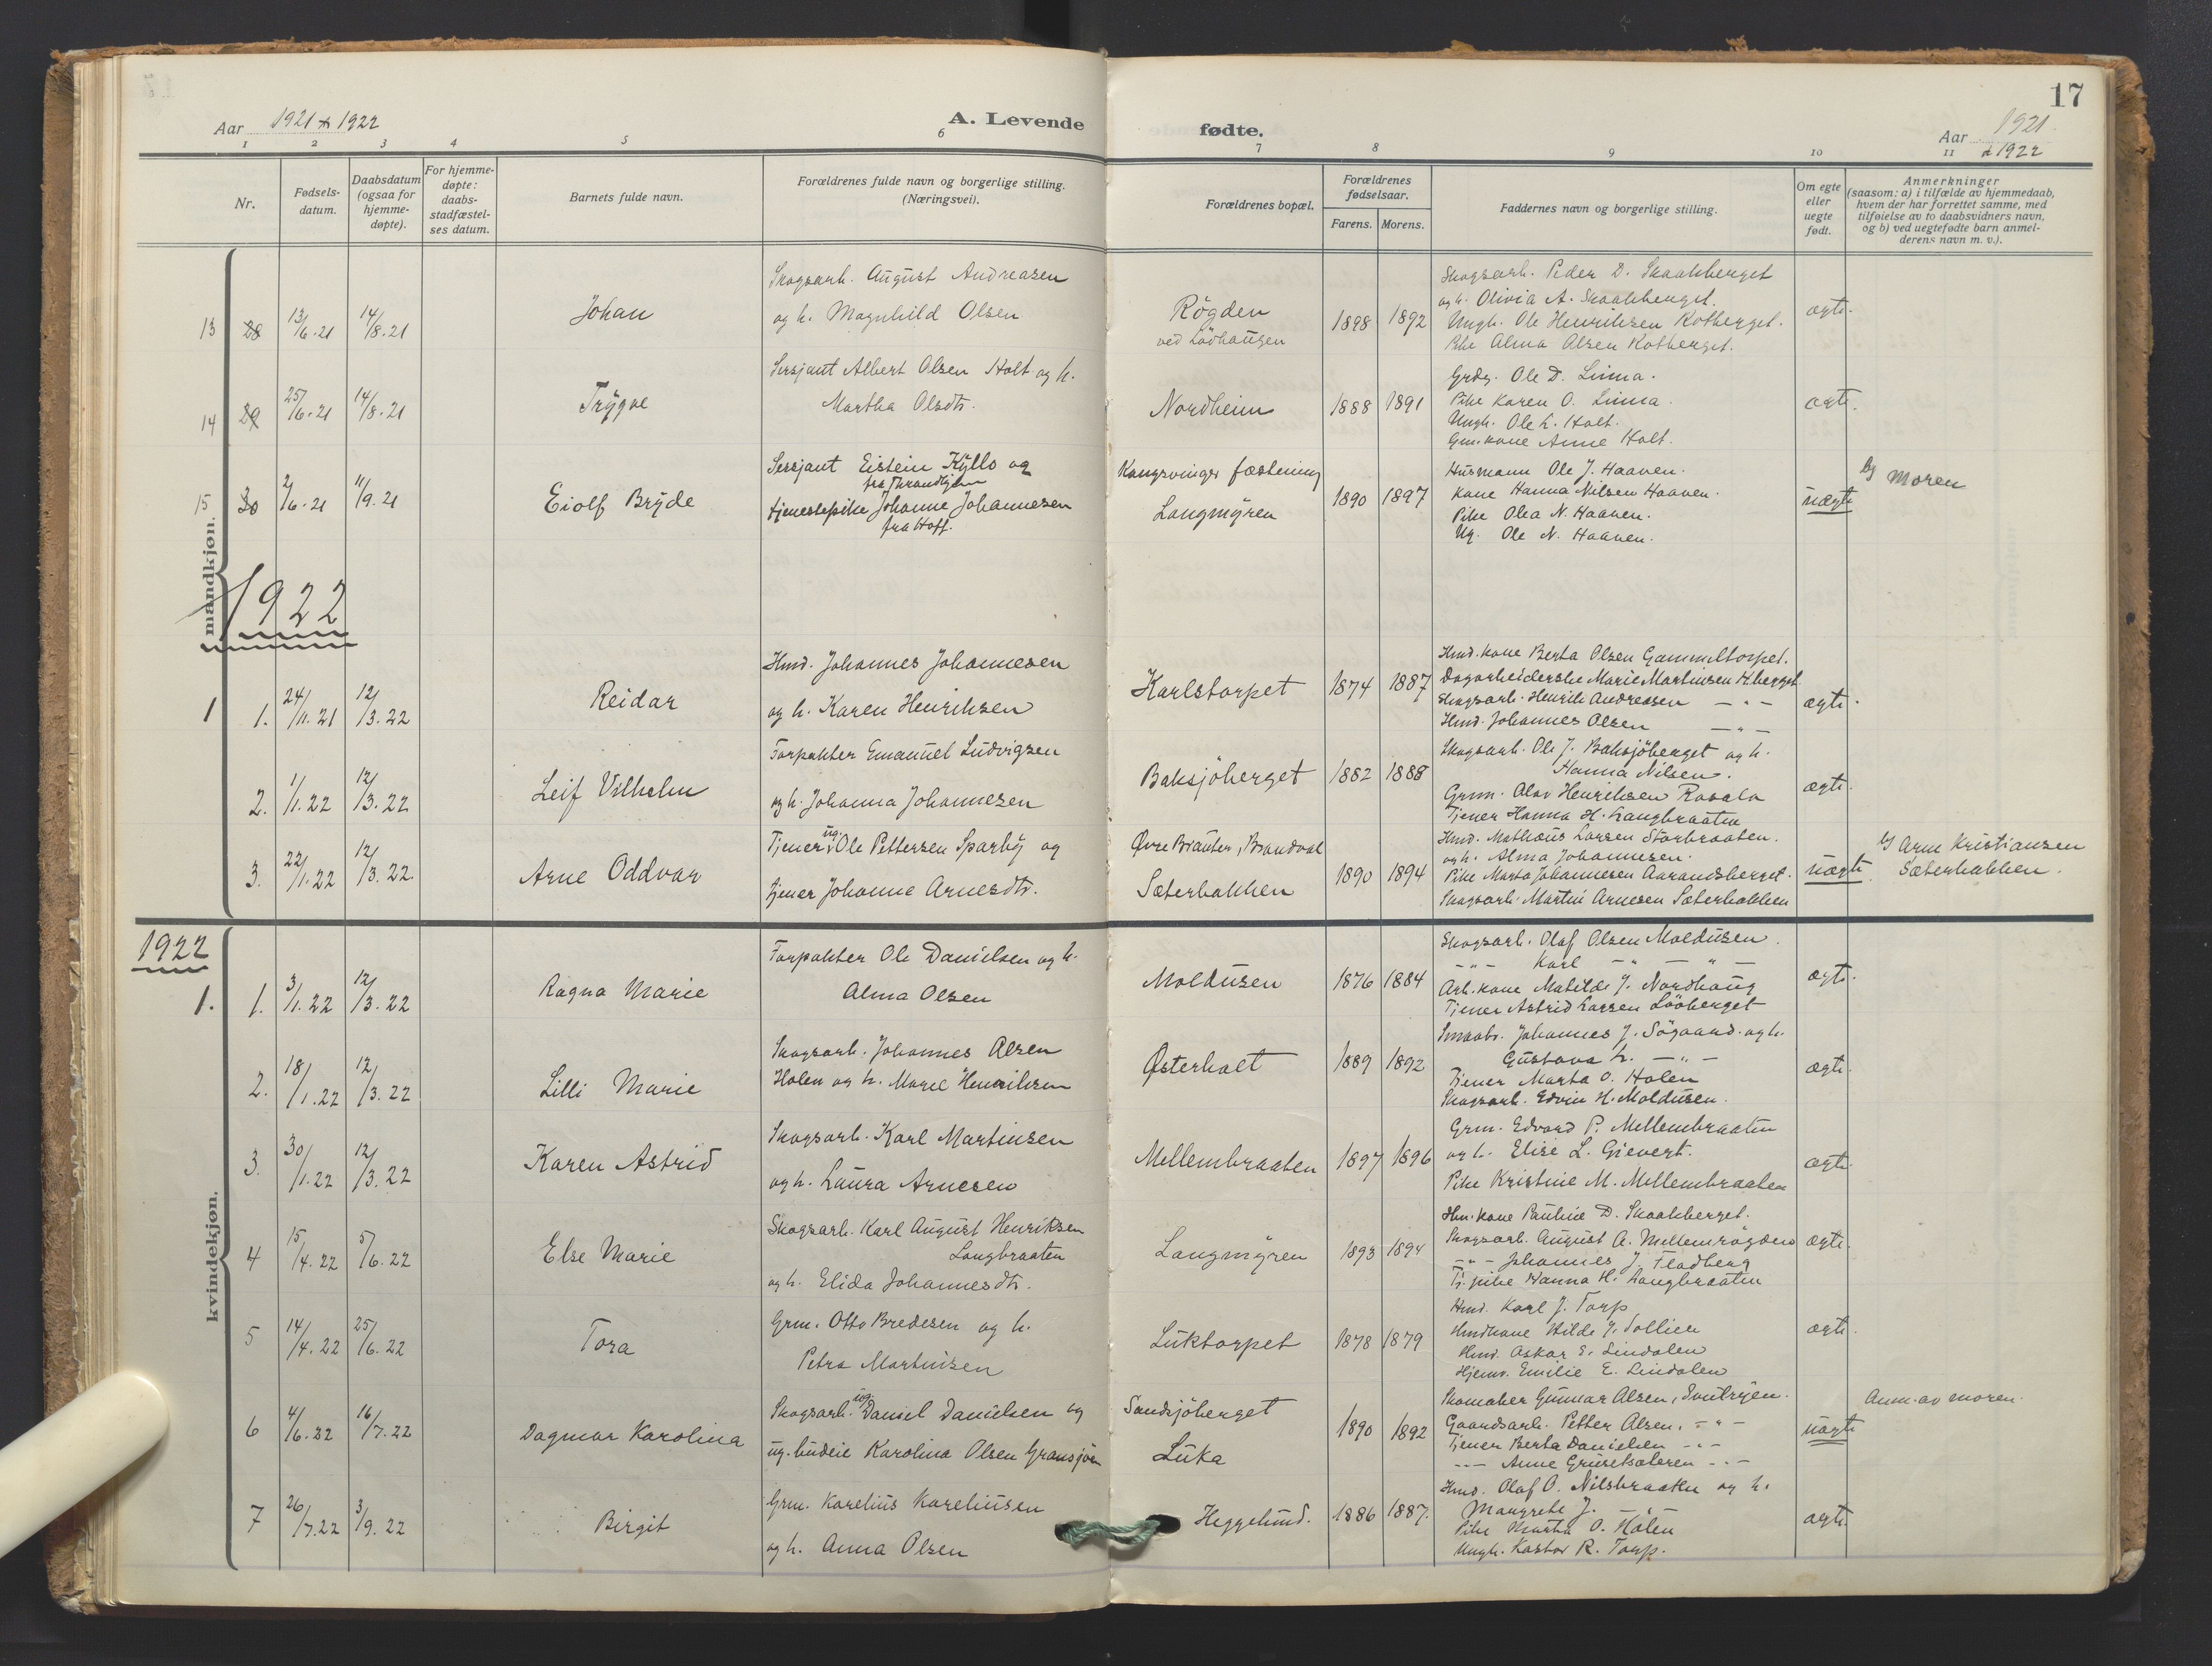 17
Aar 1921 & 1922
A. Levende fødte.
Aar 1921 & 1922
1 2 3 4 5 6 7 8 9 10 11
Nr.
Fødsels-datum.
Daabsdatum (ogsaa for hjemme-døpte).
For hjemme-døpte: daabs-stadfæstel-ses datum.
Barnets fulde navn.
Forældrenes fulde navn og borgerlige stilling. (Næringsvei).
Forældrenes bopæl.
Forældrenes fødselsaar.
Farens. Morens.
Faddernes navn og borgerlige stilling.
Om egte eller uegte født.
Anmerkninger (saasom: a) i tilfælde av hjemmedaab, hvem der har forrettet samme, med tilføielse av to daabsvidners navn, og b) ved uegtefødte barn anmel-derens navn m. v.).
mandkjøn.
13 28 13/6.21 14/8.21 Johan
Skogsarb. August Andreasen
og h. Magnhild Olsen
Rögden
ved Lövhaugen
1898 1892
Skogsarb. Peder D. Skaakberget
og h. Olivia A. Skaakberget.
Ungk. Ole Henriksen Kotberget.
Pike Alma Olsen Kotberget.
ægte.
14 29 25/6.21 14/8.21 Trygve
Sersjant Albert Olsen Holt og h.
Martha Olsdtr.
Nordheim
1888 1891
Grdbr. Ole D. Linna.
Pike Karen O. Linna.
Ungk. Ole L. Holt.
Gm. kone Anne Holt.
ægte.
15 30 2/6.21 11/9.21 Eiolf Bryde
Sersjant Eistein Kyllo og
fra Trondhjem
tjenestepike Johanne Johannesen
fra Hoff.
Kongsvinger fæstning
Langmyren
1890 1897
Husmann Ole J. Haaven.
Kone Hanna Nilsen Haaven.
Pike Olea N. Haaven.
Ug. Ole N. Haaven.
uægte
b) Moren
1922
1 1. 24/11.21 12/3.22 Reidar
Hmd. Johannes Johannesen
og h. Karen Henriksen
Karlstorpet
1874 1887
Hmd. kone Berta Olsen Gammeltorpet.
Dagarbeiderske Marie Martinsen H.berget
Skogsarb. Henrik Andreasen — " —
Hmd. Johannes Olsen — " —
ægte.
2. 1/1.22 12/3.22 Leif Vilhelm
Forpakter Emanuel Ludvigsen
og h. Johanna Johannesen
Baksjöberget
1882 1888
Skogsarb. Ole J. Baksjöberget og h.
Hanna Nilsen.
Grm. Olav Henriksen Rasala
Tjener Hanna H. Langbraaten
ægte.
3. 22/1.22 12/3.22. Arne Oddvar
Tjener ug. Ole Pettersen Sparby og
tjener Johanne Arnesdtr.
Øvre Brauter, Brandval
Sæterbakken
1890 1894
Hmd. Mathæus Larsen Storbraaten.
og h. Alma Johannesen.
Pike Marta Johannesen Aarandsberget.
Skogsarb. Martin Arnesen Sæterbakken
uægte.
b) Arne Kristiansen
Sæterbakken.
1922
kvindekjøn.
1. 1. 3/1.22 12/3.22 Ragna Marie
Forpakter Ole Danielsen og h.
Alma Olsen
Moldusen
1876 1884
Skogsarb. Olaf Olsen Moldusen.
— " — Karl — " — " —
Arb. kone Matilde J. Nordhaug
Tjener Astrid Larsen Lövberget
ægte.
2. 18/1.22 12/3.22 Lilli Marie
Skogsarb. Johannes Olsen
Holen og h. Marie Henriksen
Østerholt
1889 1892
Smaabr. Johannes J. Sögaard. og h.
Gustava L. — " —
Tjener Marta O. Holen
Skogsarb. Edvin H. Moldusen.
ægte.
3. 30/1.22 12/3.22 Karen Astrid
Skogsarb. Karl Martinsen
og h. Laura Arnesen
Mellembraaten
1897 1896
Grm. Edvard P. Mellembraaten
og h. Elise L. Gievert.
Pike Kristine M. Mellembraaten
ægte.
4 15/4.22 5/6.22 Else Marie
Skogsarb. Karl August Henriksen
Langbraaten
og h. Elida Johannesdtr.
Langmyren
1893 1894
Hm. kone Pauline D. Skaakberget.
Skogsarb. August A. Mellemrögden
— " — Johannes J. Fladberg
Tj. pike Hanna H. Langbraaten
ægte.
5 14/4.22 25/6.22 Tora
Grm. Otto Bredesen og h.
Petra Martinsen
Luktorpet
1878 1879
Hmd. Karl J. Torp
Hmdkone Hilda J. Sollien
Hmd. Askar E. Lindalen
Hjemv. Emilie E. Lindalen
ægte.
6 4/6.22 16/7.22 Dagmar Karolina
Skogsarb. ug. Daniel Danielsen og
ug. budeie Karolina Olsen Gransjöen
Sandsjöberget
Luka
1890 1892
Skomaker Gunnar Olsen,
Gaardsarb. Petter Olsen, — " —
Tjener Berta Danielsen — " —
— " — Anne Grusetsæteren — " —
uægte
Anm. av moren.
7 26/7.22 3/9.22 Birgit
Grm. Karelius Kareliusen
og h. Anna Olsen
Heggelund.
1886 1887.
Hmd. Olaf O. Nilsbraaten og h.
Margrete J. — " —
Pike Martha O. Holen
Ungk. Kastor R. Torp.
ægte.